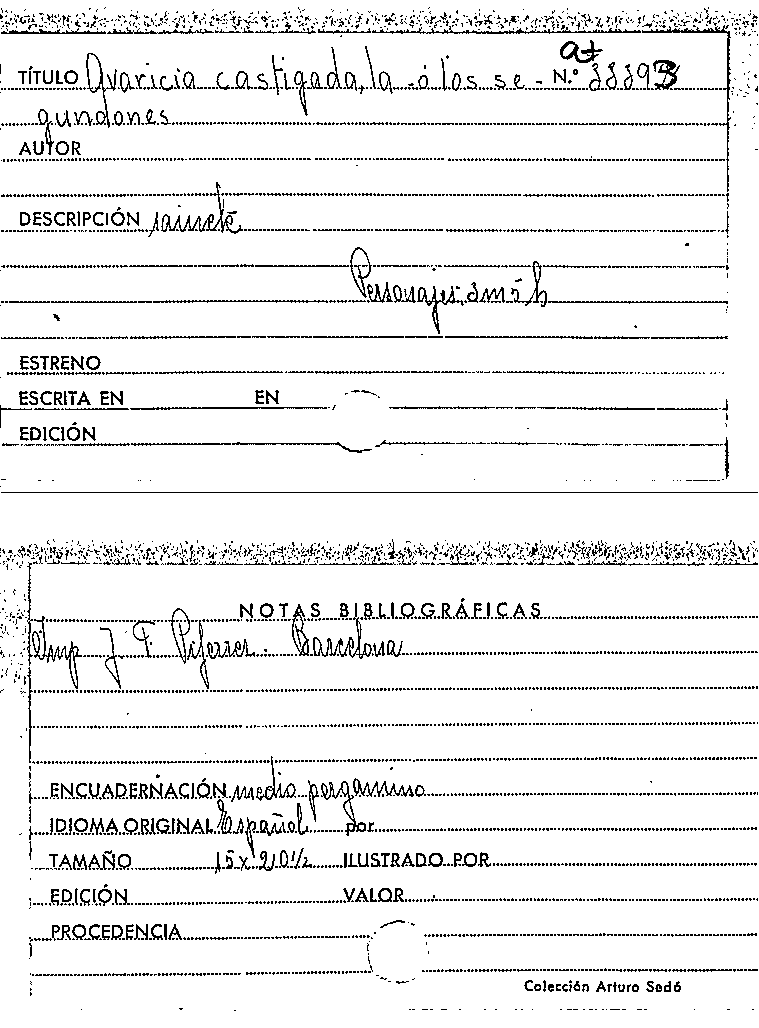 at
TÍTULO Avaricia castigada, la - ó los se - N.º
gundones
AUTOR
DESCRIPCIÓN sainete
Personajes, 3 m 5 h
ESTRENO
ESCRITA EN EN
EDICIÓN
NOTAS BIBLIOGRÁFICAS
Imp J. F. Piferrer. Barcelona
ENCUADERNACIÓN medio pergamino
IDIOMA ORIGINAL Español por
TAMAÑO 15 x 21 0 1/2 ILUSTRADO POR
EDICIÓN VALOR
PROCEDENCIA
Colección Arturo Sedó